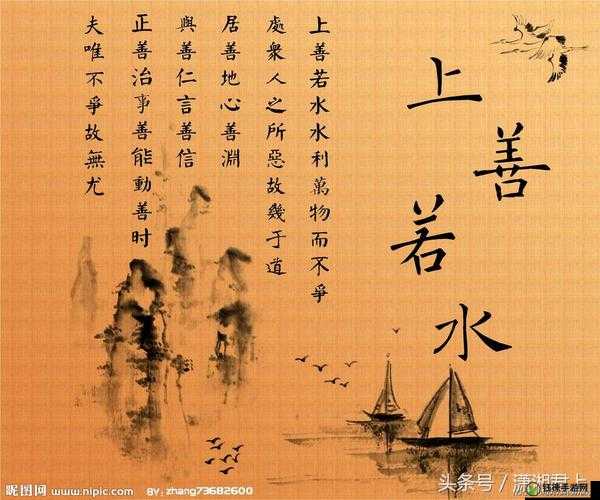 上善若水
上善若水水利萬物而不爭
處衆人之所惡故幾于道
居善地心善淵
與善仁言善信
正善治事善能動善时
夫唯不爭故無尤
昵图网
www.nipic.com
BY: zhang73682600
头条号／潇湘君上
钱徕手游网